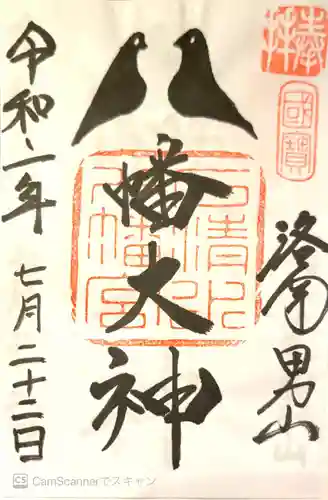 奉拝
國寶
洛南男山
八幡大神
石清水
八幡宮
令和二年七月二十二日
CS CamScannerでスキャン